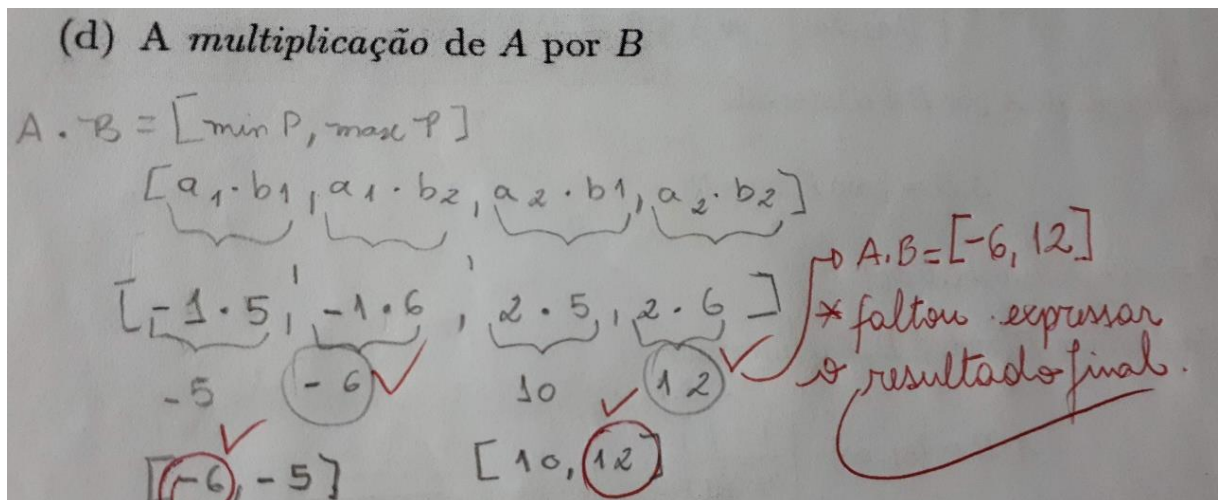 (d) A multiplicação de A por B
A . B = [min P, max P]
[a1 . b1, a1 . b2, a2 . b1, a2 . b2]
[-1 . 5, -1 . 6, 2 . 5, 2 . 6]
-5 -6 10 12
[-6, -5] [10, 12]
A.B=[-6, 12]
* faltou expressar
o resultado final.